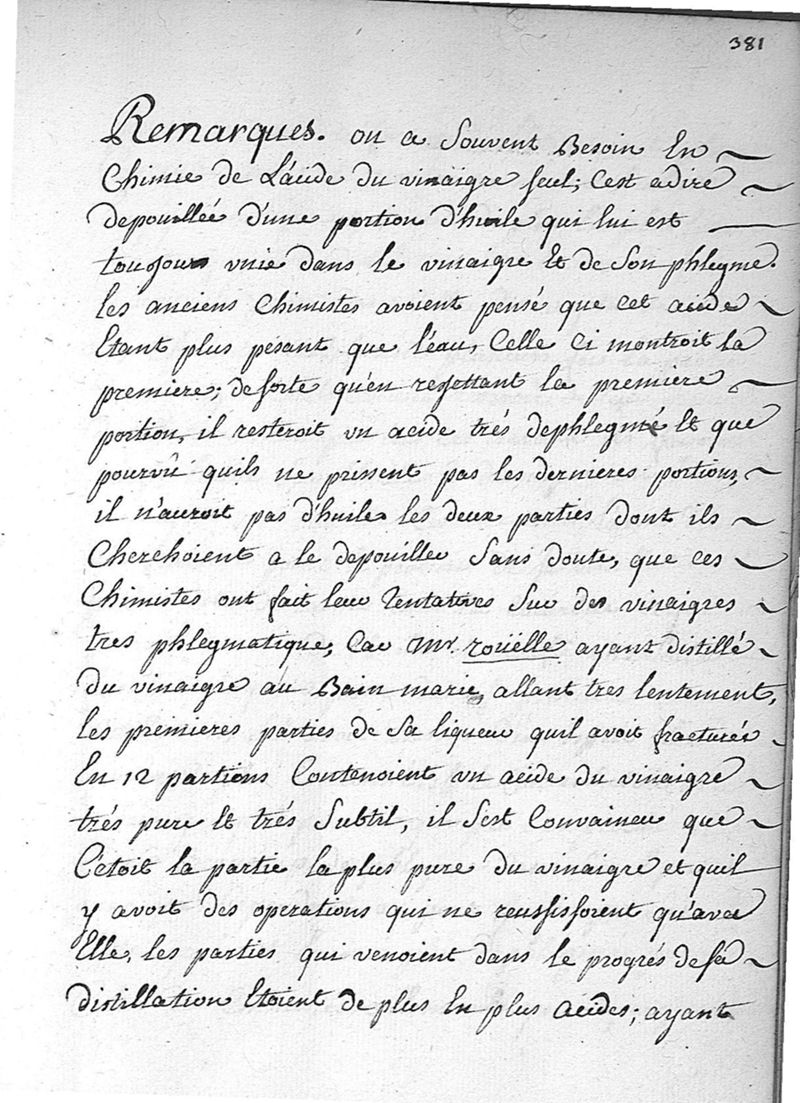 381
Remarques. on a Souvent Besoin En
Chimie de L'acide du vinaigre seul; C'est a dire
depouillée d'une portion d'huile qui lui est
toujours vnie dans le vinaigre Et de Son phlegme.
les anciens Chimistes avoient pensé que cet acide
Etant plus pésant que l'éau, Celle Ci montroit la
premiere; de sorte qu'en rejettant la premiere
portion, il resteroit vn acide trés dephlegmé Et que
pourvû quils ne prissent pas les dernieres portions,
il n'auroit pas d'huile les deux parties dont ils
Cherchoient a le depouiller Sans doute, que ces
Chimistes ont fait leur Tentatives Sur des vinaigres
tres phlegmatique; Car Mr. roüelle ayant distillé
du vinaigre au Bain marie, allant tres lentement,
les premieres parties de Sa liqueur quil avoit fracturés
En 12 partions Contenoient vn acide du vinaigre
trés pure Et trés Subtil, il S'est Convaincu que
C'étoit la partie la plus pure du vinaigre et quil
y avoit des operations qui ne reussissoient qu'avec
Elle, les parties qui venoient dans le progrés de sa
distillation Etoient de plus En plus acides; ayant